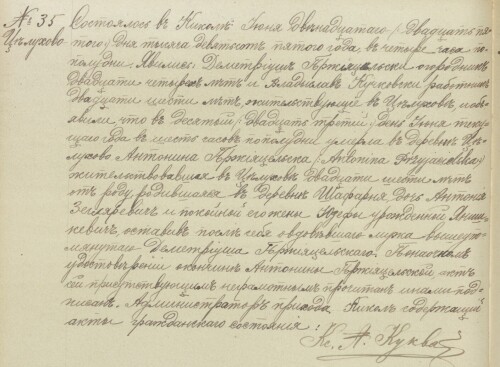 № 35
Цѣлухово
Состоялось въ Киколѣ Іюня двѣнадцатаго (Двадцать пя-
таго) дня тысяча девятьсотъ пятаго года, въ четыре часа по
полудни. Явились: Деметріушъ Пржіяцѣльски огородникъ
двадцати четырехъ лѣтъ и Владыславъ Кучковски работникъ
двадцати шести лѣтъ жительствующіе въ Цѣлуховѣ, и объ-
явили что въ десятый (двадцать третій) день Іюня теку-
щаго года въ шесть часовъ пополудни умерла въ деревнѣ Цѣ-
лухово Антонина Пржіяцѣльска (Antonina Przyjacielska)
жительствовавшая въ Цѣлуховѣ двадцати шести лѣтъ
отъ роду, родившаяся въ деревнѣ Шафарня, дочь Антонія
и покойной его жены Юзефы урожденной
оставивъ послѣ себя овдовѣвшаго мужа вышеупо-
мянутаго Деметріуша Пржіяцѣльскаго. По наочномъ
удостовѣреніи о кончинѣ Антонины Пржіяцѣльской актъ
сей присутствующимъ неграмотнымъ прочитанъ нами под-
писанъ. Администраторъ прихода Киколъ содержащій
акты гражданскаго состоянія:
Кс. А. Куква